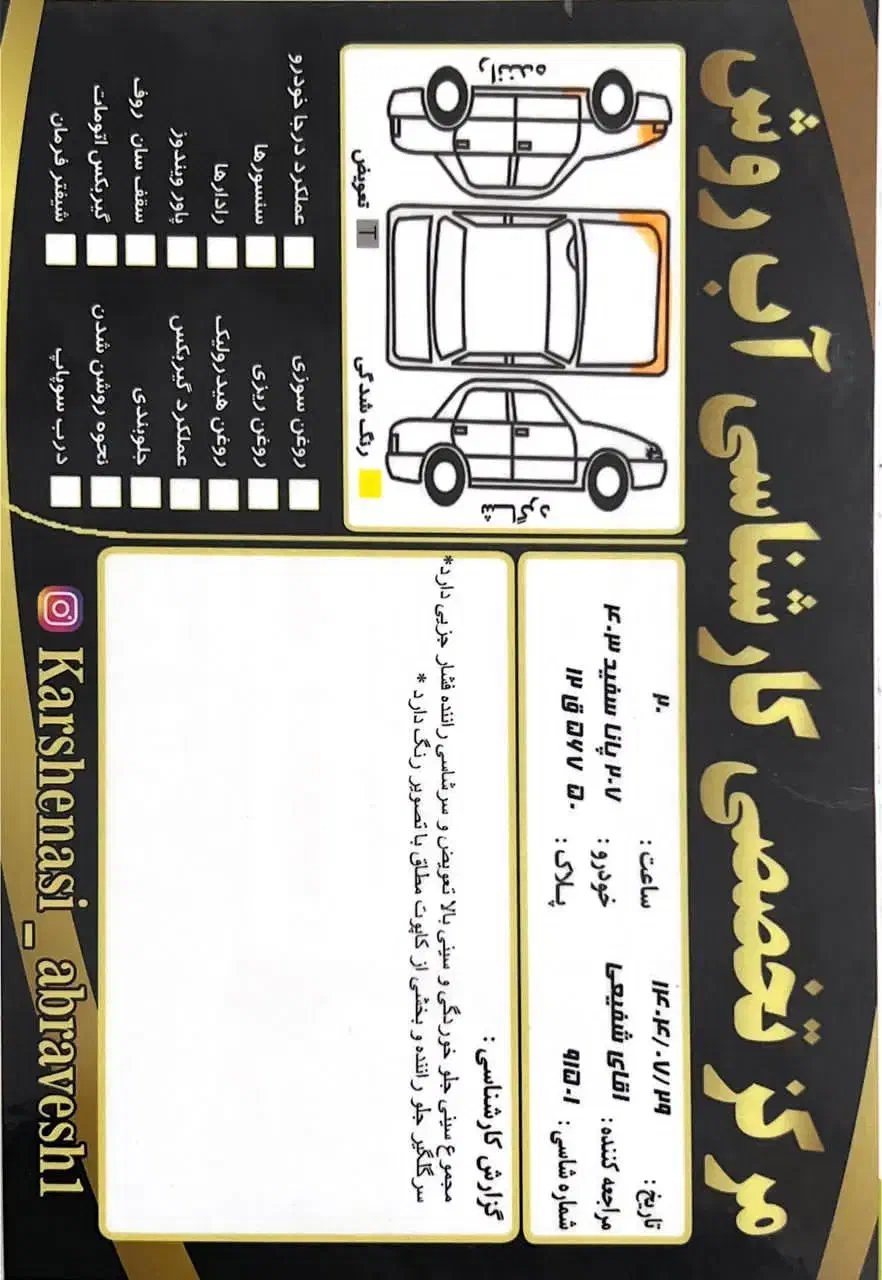 مرکز تخصصی کارشناسی آب روش
تاریخ : ۱۴۰۴/۰۷/۲۹
ساعت : ۲۰
مراجعه کننده : اقای شفیعی
خودرو : ۲۰۷ پانا سفید ۴۰۳
شماره شاسی : ۹۱۵۰۱
پلاک : ۵۰ ۵۶۷ ق ۱۲
گزارش کارشناسی :
مجموع سینی جلو خوردگی و سینی بالا تعویض و سرشاسی راننده فشار جزیی دارد*
سرگلگیر جلو راننده و بخشی از کاپوت مطلق با تصویر رنگ دارد *
راننده
شاگرد
تعویض T
رنگ شدگی
عملکرد درجا خودرو
سنسورها
رادارها
پاور ویندوز
سقف سان روف
گیربکس اتومات
شیفتر فرمان
روغن سوزی
روغن ریزی
روغن هیدرولیک
عملکرد گیربکس
جلوبندی
نحوه روشن شدن
درب سوپاپ
Karshenasi_abravesh1